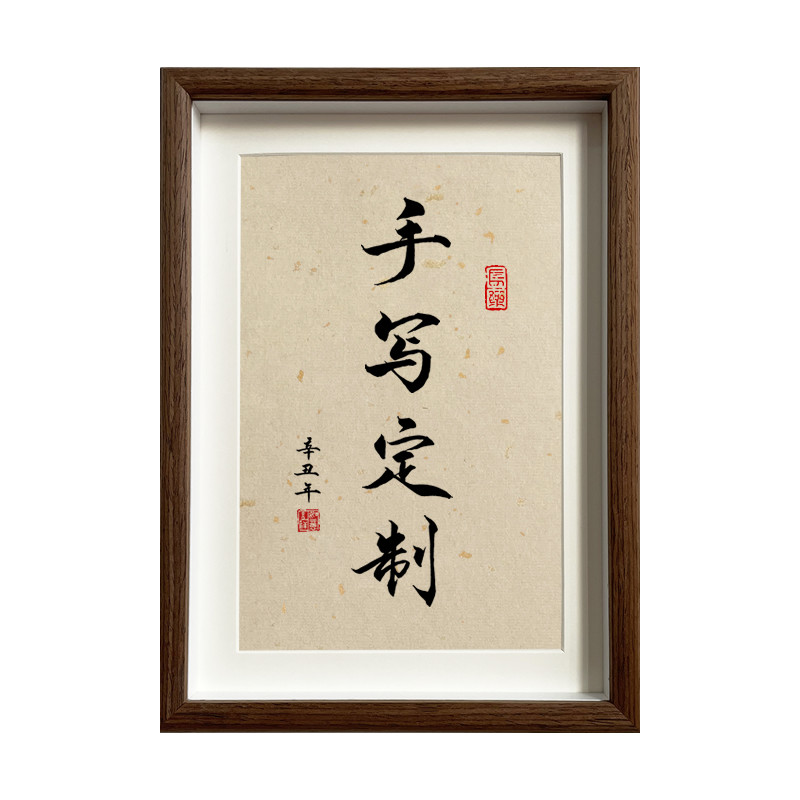 手写定制
辛丑年